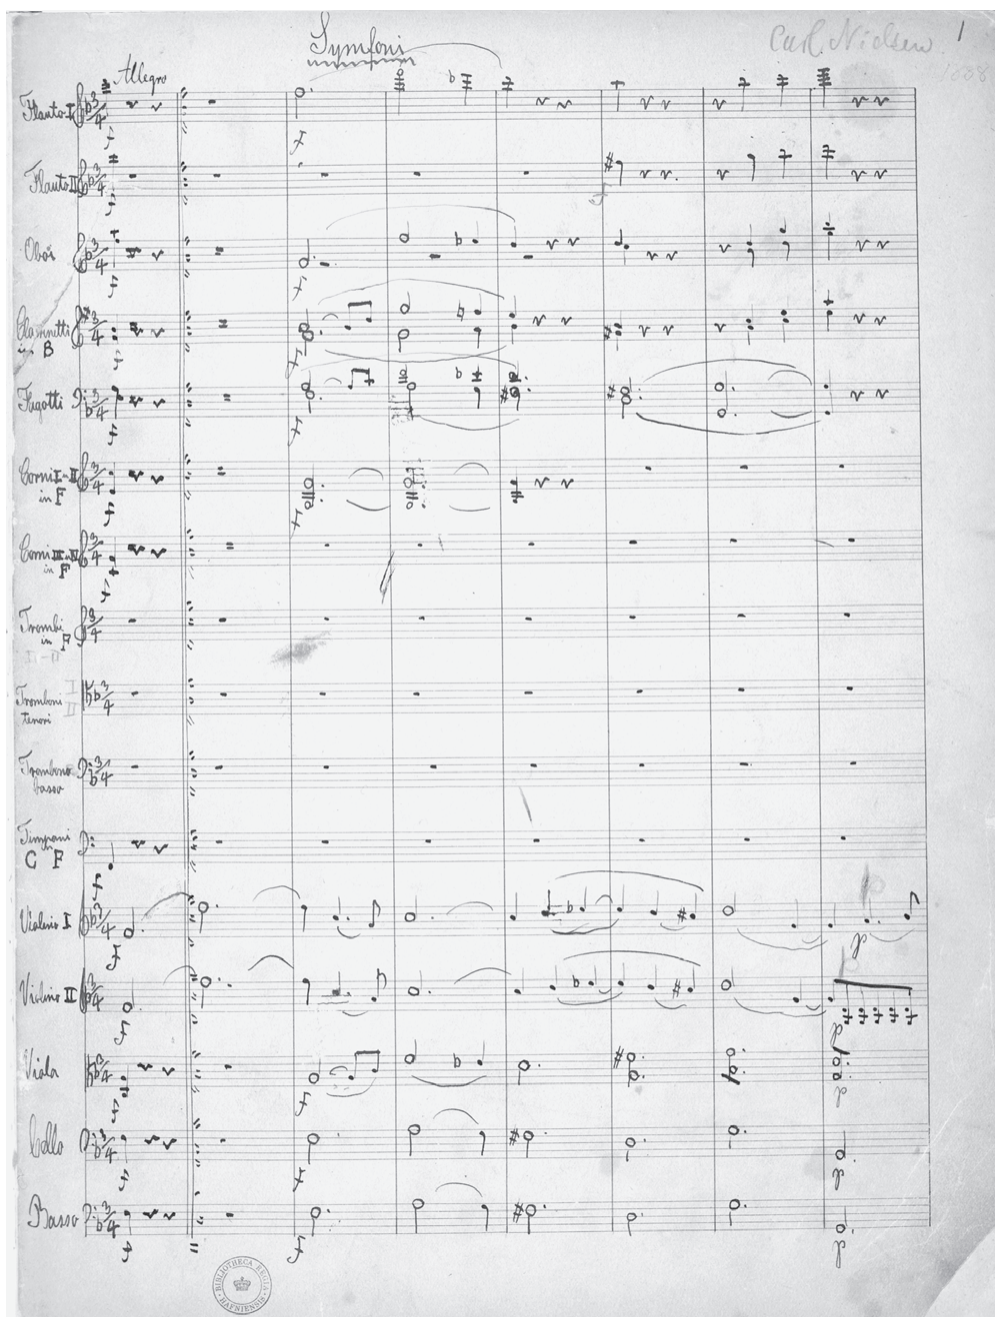 Symfoni
Carl Nielsen 1
Allegro
Flauto I
Flauto II
Oboi
Clarinetti
in B
Fagotti
Corni I-II
in F
Corni III-IV
in F
Trombi
in F
Tromboni
tenori
Trombone
basso
Timpani
C F
Violino I
Violino II
Viola
Cello
Basso
BIBLIOTHECA REGIA
HAFNIENSIS